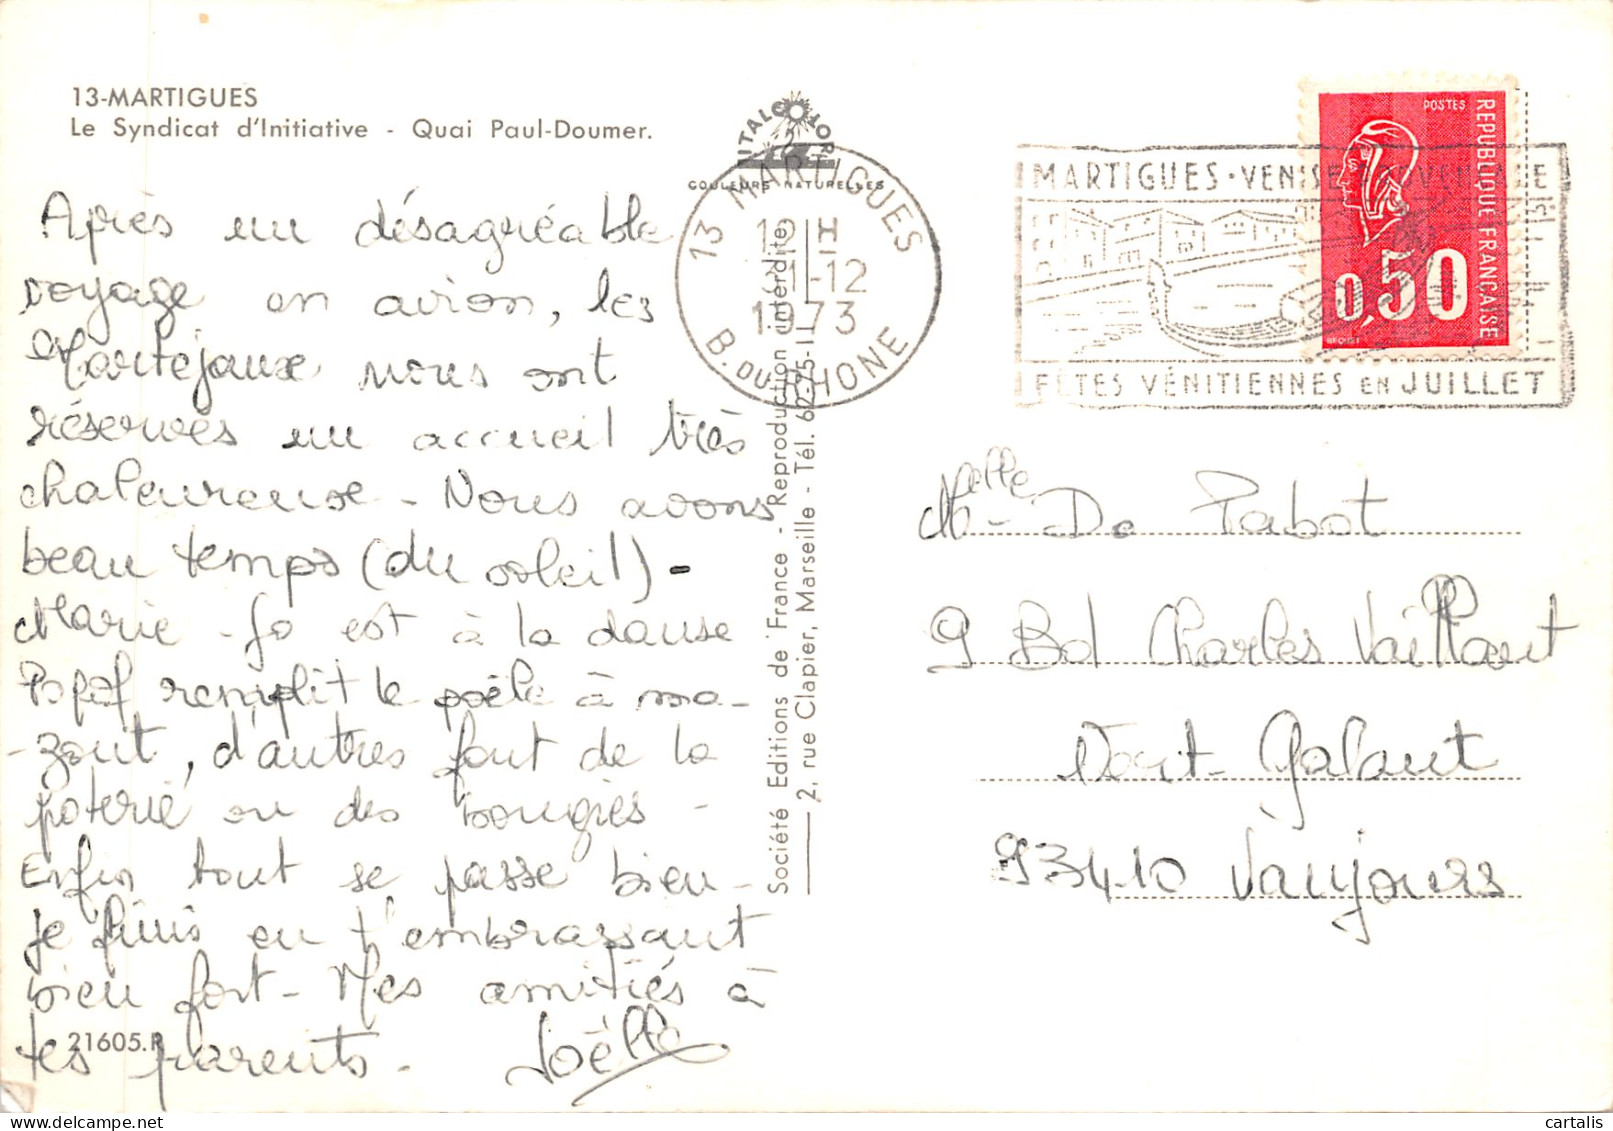 13-MARTIGUES
Le Syndicat d'Initiative - Quai Paul-Doumer.
Après un désagréable
voyage en avion, les
Martéjaux nous ont
réservés un accueil très
chaleureuse - Nous avons
beau temps (du soleil) -
Marie - Jo est à la danse
Popof remplit le poêle à ma-
-zout, d'autres font de la
poterie ou des bougies -
Enfin tout se passe bien -
Je finis en t'embrassant
bien fort - Mes amitiés à
tes parents. Joëlle
21605.R
ITALCOLOR
COULEURS NATURELLES
Société Editions de France - Reproduction interdite
2, rue Clapier, Marseille - Tél. 62-75-11
13 MARTIGUES
19 H
31-12
1973
B. DU RHONE
MARTIGUES · VENISE PROVENÇALE
FÊTES VÉNITIENNES EN JUILLET
POSTES
REPUBLIQUE FRANÇAISE
0,50
BEQUET
Melle - De Tabot
9 Bd Charles Vaillant
Vert - Galant
93410 Vaujours
© cartalis